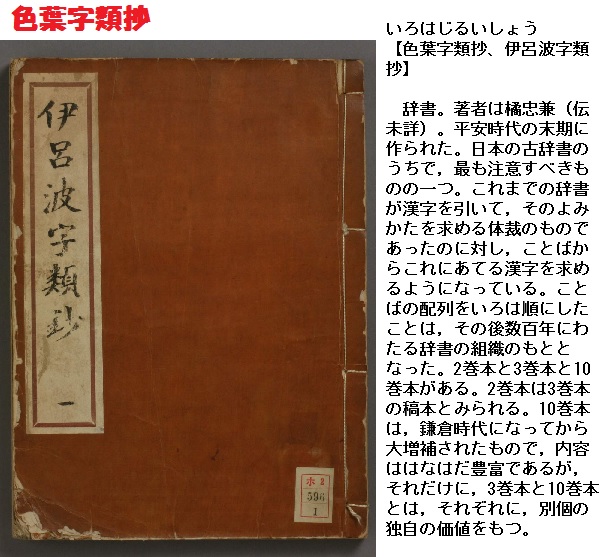 色葉字類抄
伊呂波字類抄
一
ホ2
596
1
いろはじるいしょう
【色葉字類抄、伊呂波字類
抄】
辞書。著者は橘忠兼（伝
未詳）。平安時代の末期に
作られた。日本の古辞書の
うちで，最も注意すべきも
のの一つ。これまでの辞書
が漢字を引いて，そのよみ
かたを求める体裁のもので
あったのに対し，ことばか
らこれにあてる漢字を求め
るようになっている。こと
ばの配列をいろは順にした
ことは，その後数百年にわ
たる辞書の組織のもとと
なった。2巻本と3巻本と10
巻本がある。2巻本は3巻本
の稿本とみられる。10巻本
は，鎌倉時代になってから
大増補されたもので，内容
ははなはだ豊富であるが，
それだけに，3巻本と10巻本
とは，それぞれに，別個の
独自の価値をもつ。